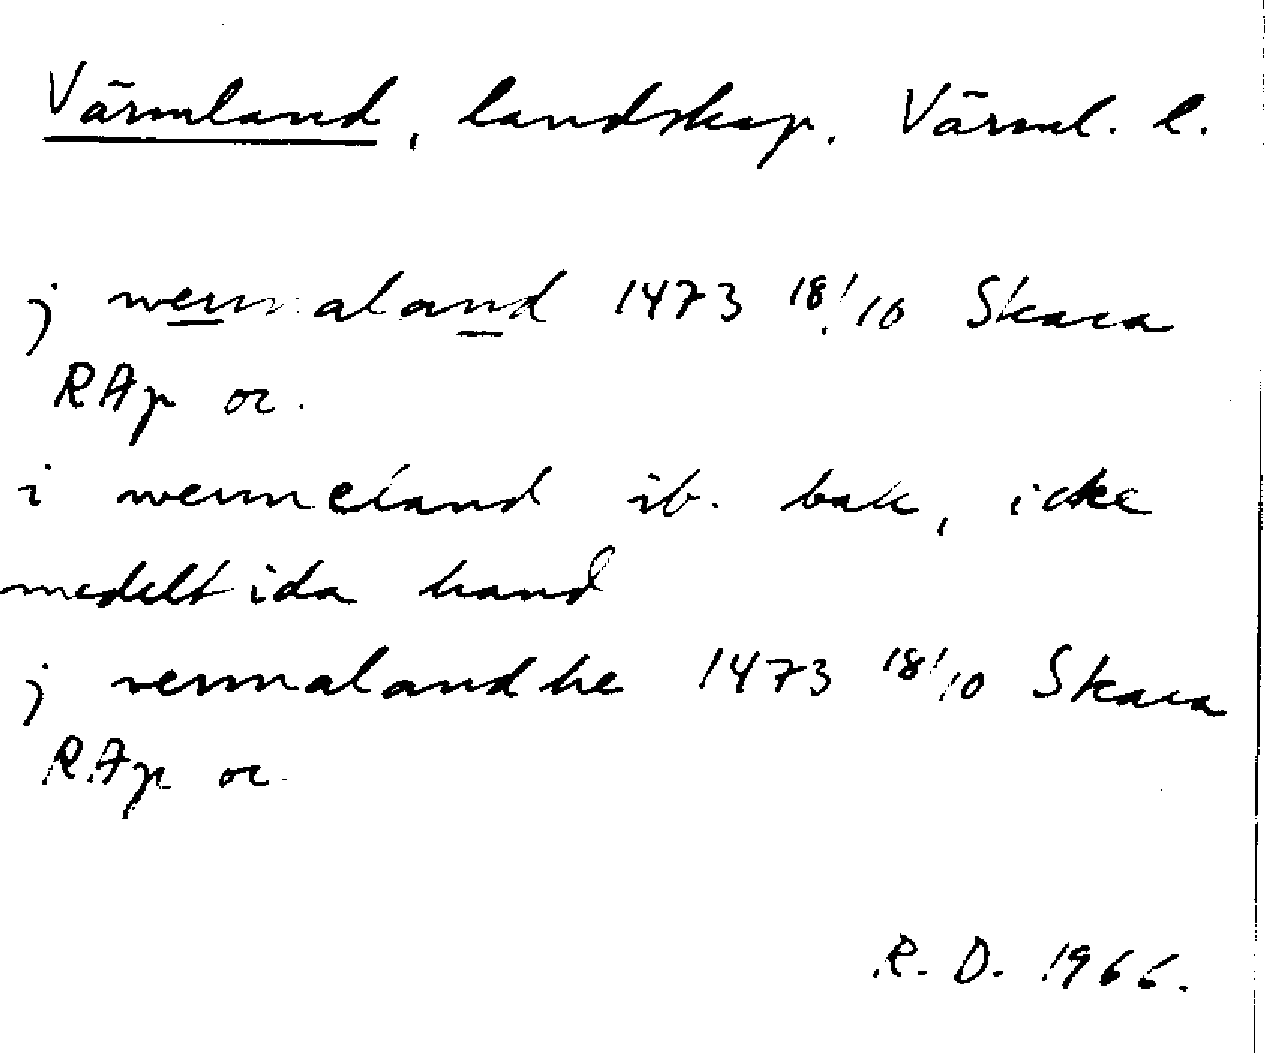 Värmland, landskap. Värml. l.
j wermaland 1473 18/10 Skara
RAp or.
i wermeland ib. bak, icke
medeltida hand
j vermalandhe 1473 18/10 Skara
RAp or.
R. D. 1966.